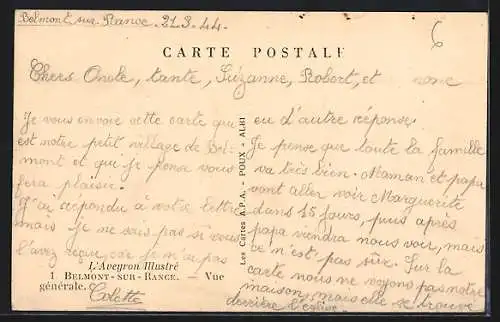 Belmont sur Rance. 21.3.44
6
CARTE POSTALE
Chers Oncle, tante, Suzanne, Robert, et
Je vous envoie cette carte qui
est notre petit village de Bel-
mont et qui je pense vous
fera plaisir.
J'ai répondu à votre lettre
mais je ne sais pas si vous
l'avez reçue, car je n'ai pas
eu d'autre réponse.
Je pense que toute la famille
va très bien. Maman et papa
vont aller voir Marguerite
dans 15 jours, puis après
papa viendra nous voir, mais
ce n'est pas sûr. Sur la
carte nous ne voyons pas notre
maison, mais elle se trouve
derrière l'église.
Colette
Les Cartes A.P.A. - POUX - ALBI
L'Aveyron Illustré
1 BELMONT-SUR-RANCE. — Vue
générale.